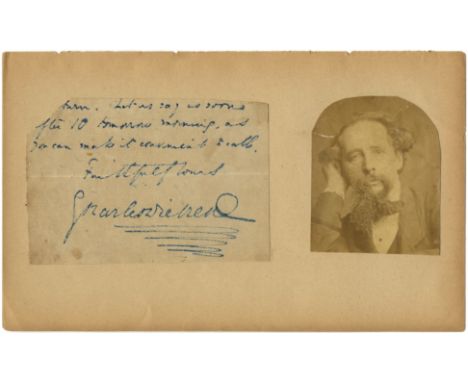 turn. Let us say as soon
after 10 tomorrow morning, as
you can make it convenient to call.
Faithfully Yours
Charles Dickens